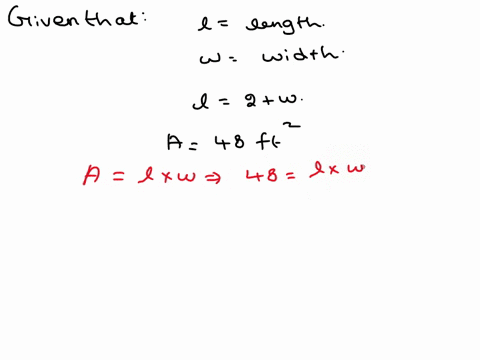 Given that: l = length.
w = width.
l = 2 + w.
A = 48 ft²
A = l × w ⇒ 48 = l × w